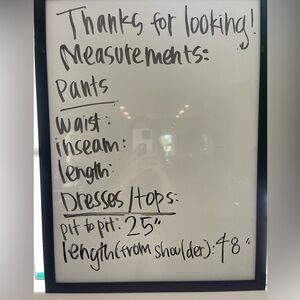 Thanks for looking!
Measurements:
Pants
waist:
inseam:
length:
Dresses/tops:
pit to pit: 25"
length(from shoulder): 48"